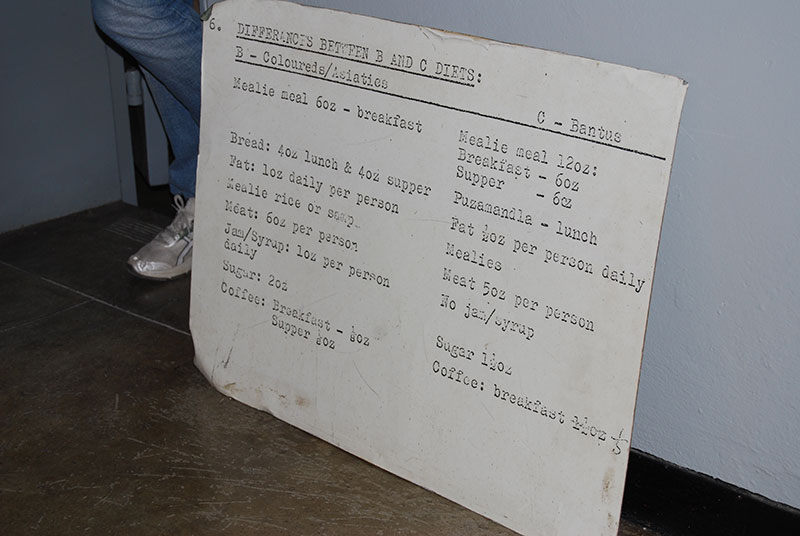 6. DIFFERANCES BETWEEN B AND C DIETS:
B - Coloureds/Asiatics
Mealie meal 6oz - breakfast
Bread: 4oz lunch & 4oz supper
Fat: 1oz daily per person
Mealie rice or
Meat: 6oz per person
Jam/Syrup: 1oz per person
daily
Sugar: 2oz
Coffee: Breakfast -
Supper
C - Bantus
Mealie meal 12oz:
Breakfast - 6oz
Supper - 6oz
Puzamandla - lunch
Fat ½oz per person daily
Mealies
Meat 5oz per person
No jam/syrup
Sugar 1½oz
Coffee: breakfast